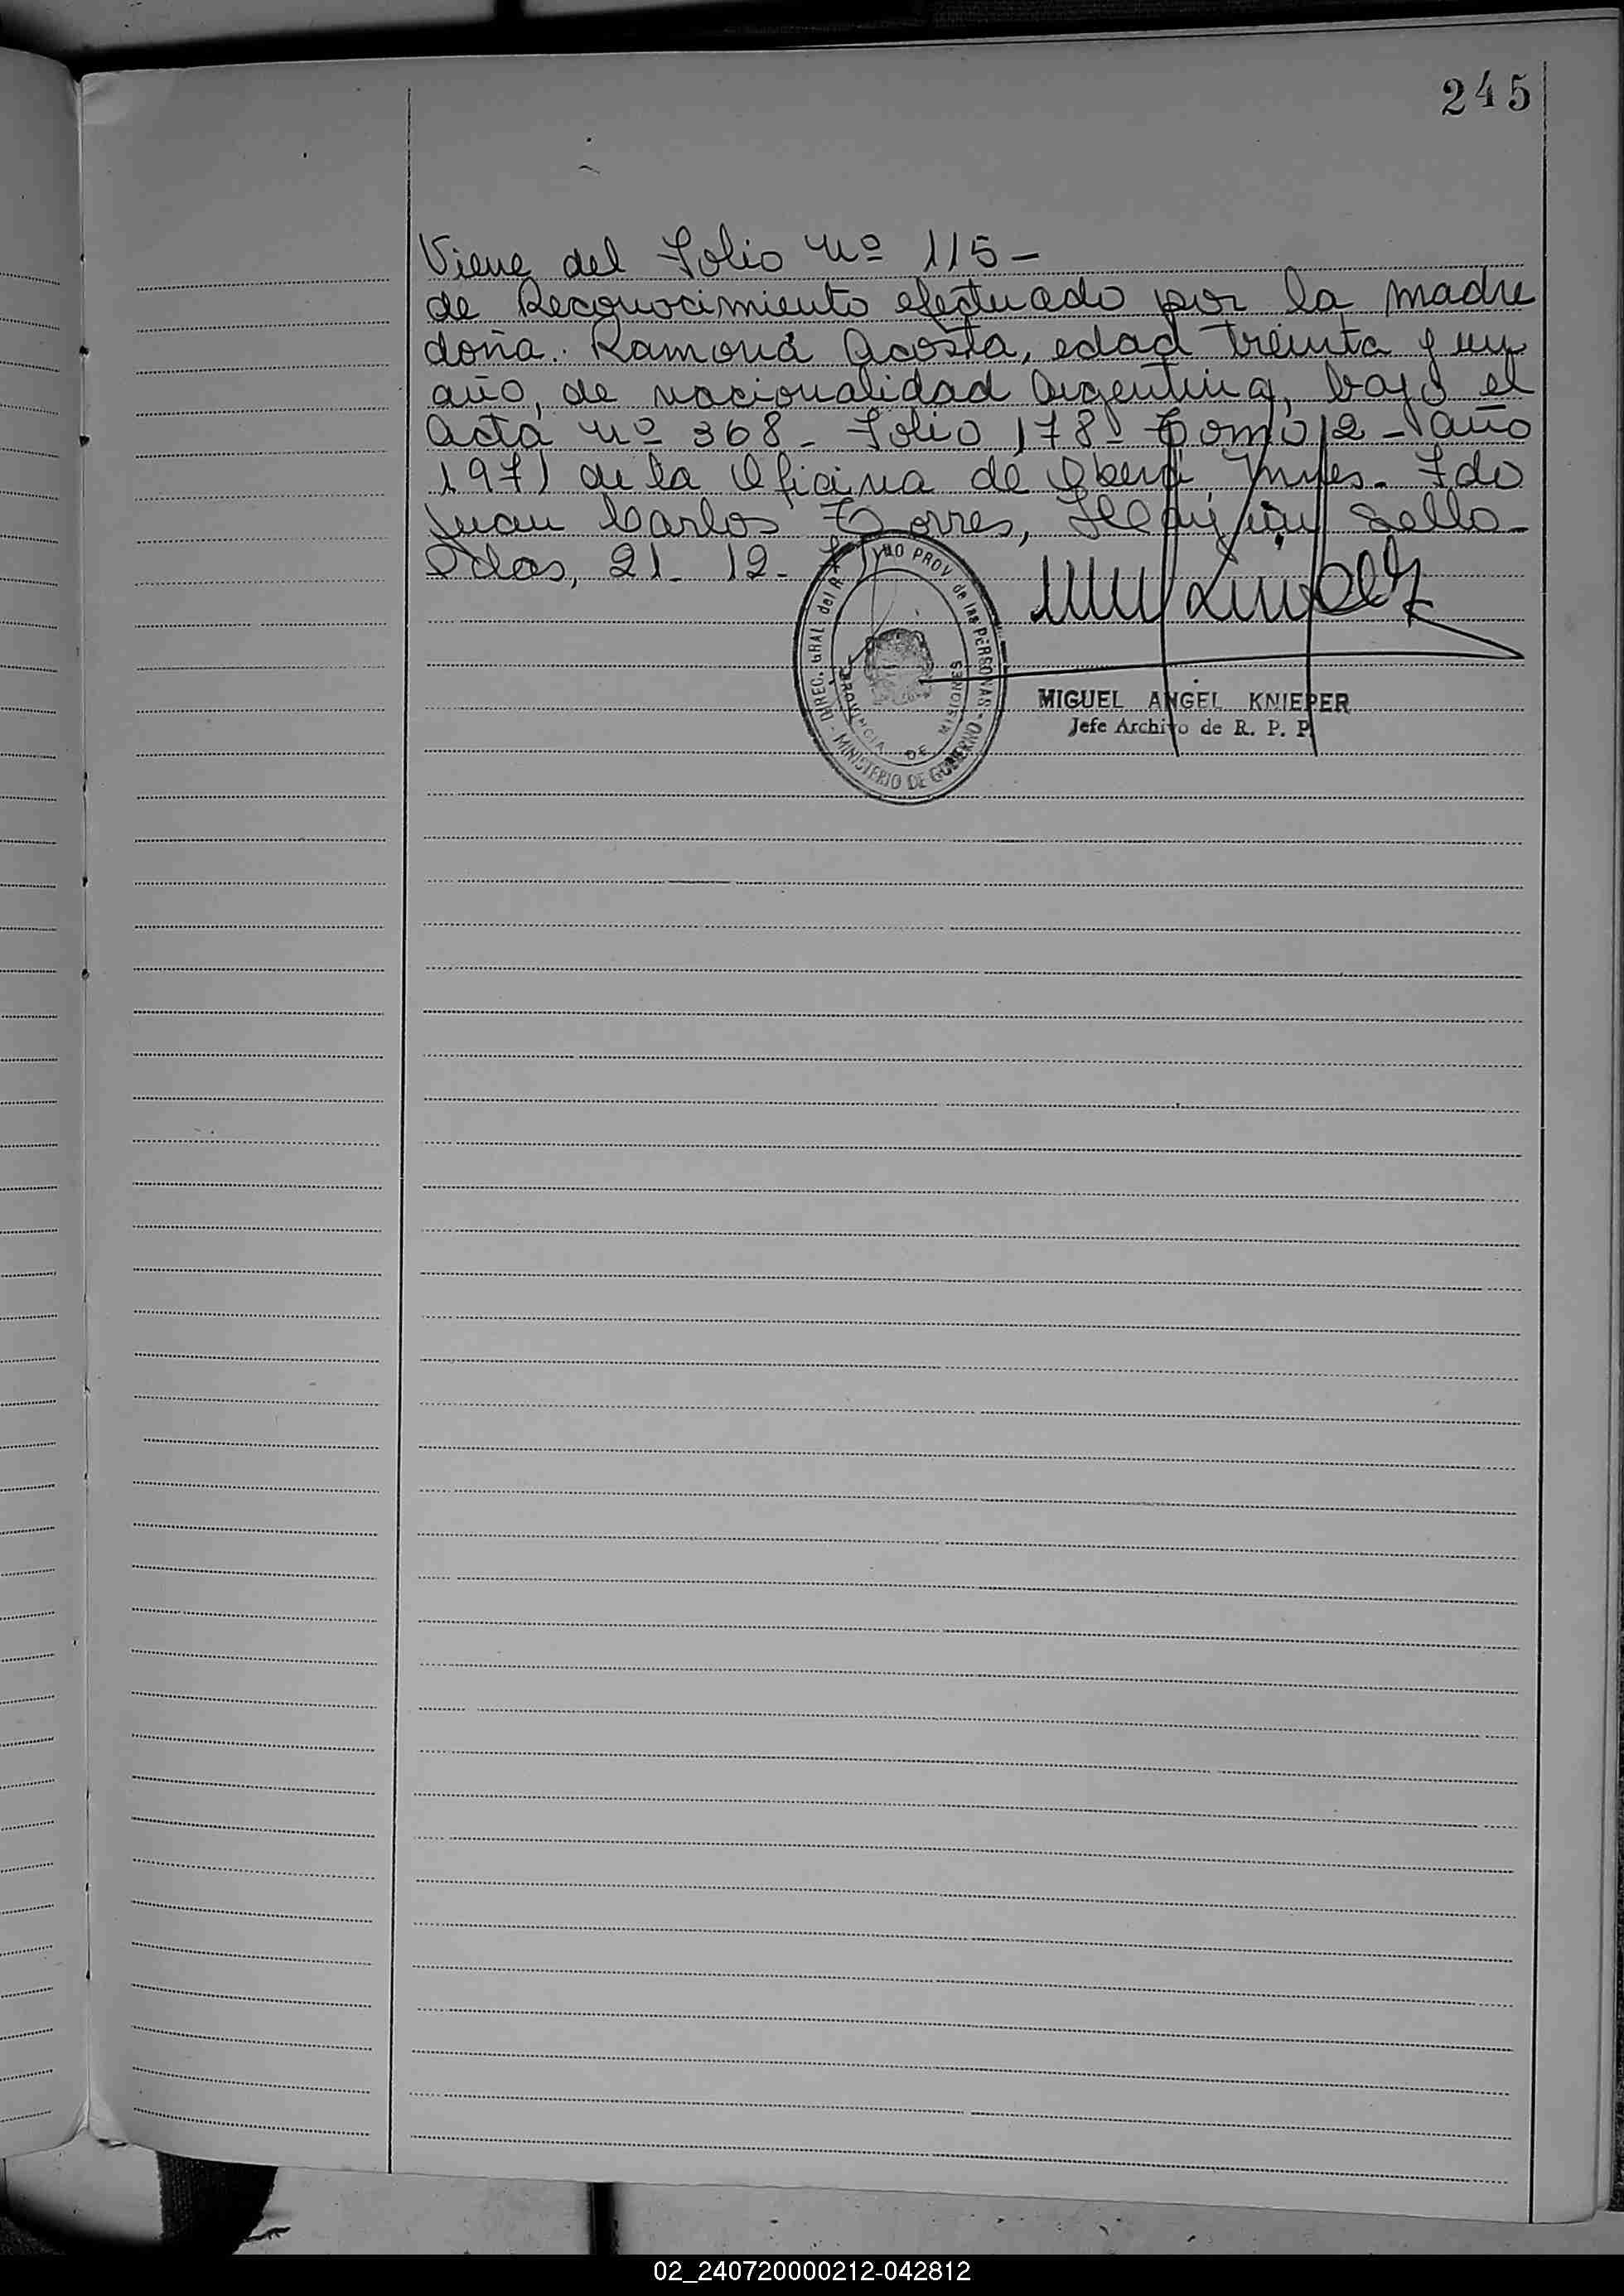 245
Viene del Folio Nº 115-
de Reconocimiento efectuado por la madre
doña. Ramona Acosta, edad treinta y un
año, de nacionalidad Argentina, bajo el
Acta Nº 368- Folio 178- Tomo 2- año
1971 de la Oficina de Oberá, Mnes. Fdo
Juan Carlos Torres, Hay un Sello-
Pdas, 21- 12-
DIREC. GRAL del R PROV. de las PERSONAS
MINISTERIO DE GOBIERNO
PROVINCIA DE MISIONES
MIGUEL ANGEL KNIEPER
Jefe Archivo de R. P. P.
02_240720000212-042812